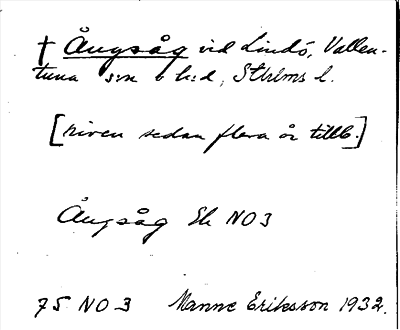 † Ångsåg vid Lindö, Vallen-
tuna sn o h:d, Sthlms l.
[riven sedan flera år tillb.]
Ångsåg Ek NO3
75 NO3 Manne Eriksson 1932.